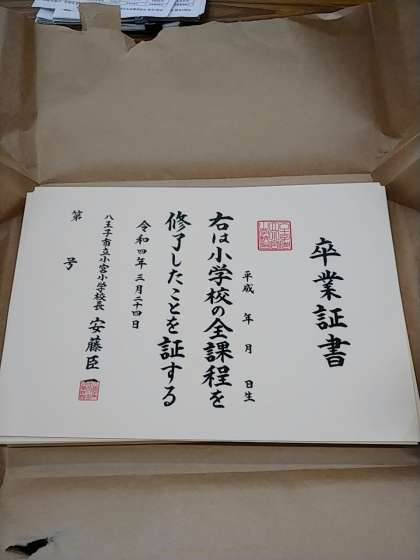 卒業証書
平成　年　月　日生
右は小学校の全課程を
修了したことを証する
令和四年三月二十四日
八王子市立小宮小学校長　安藤臣一
第　号